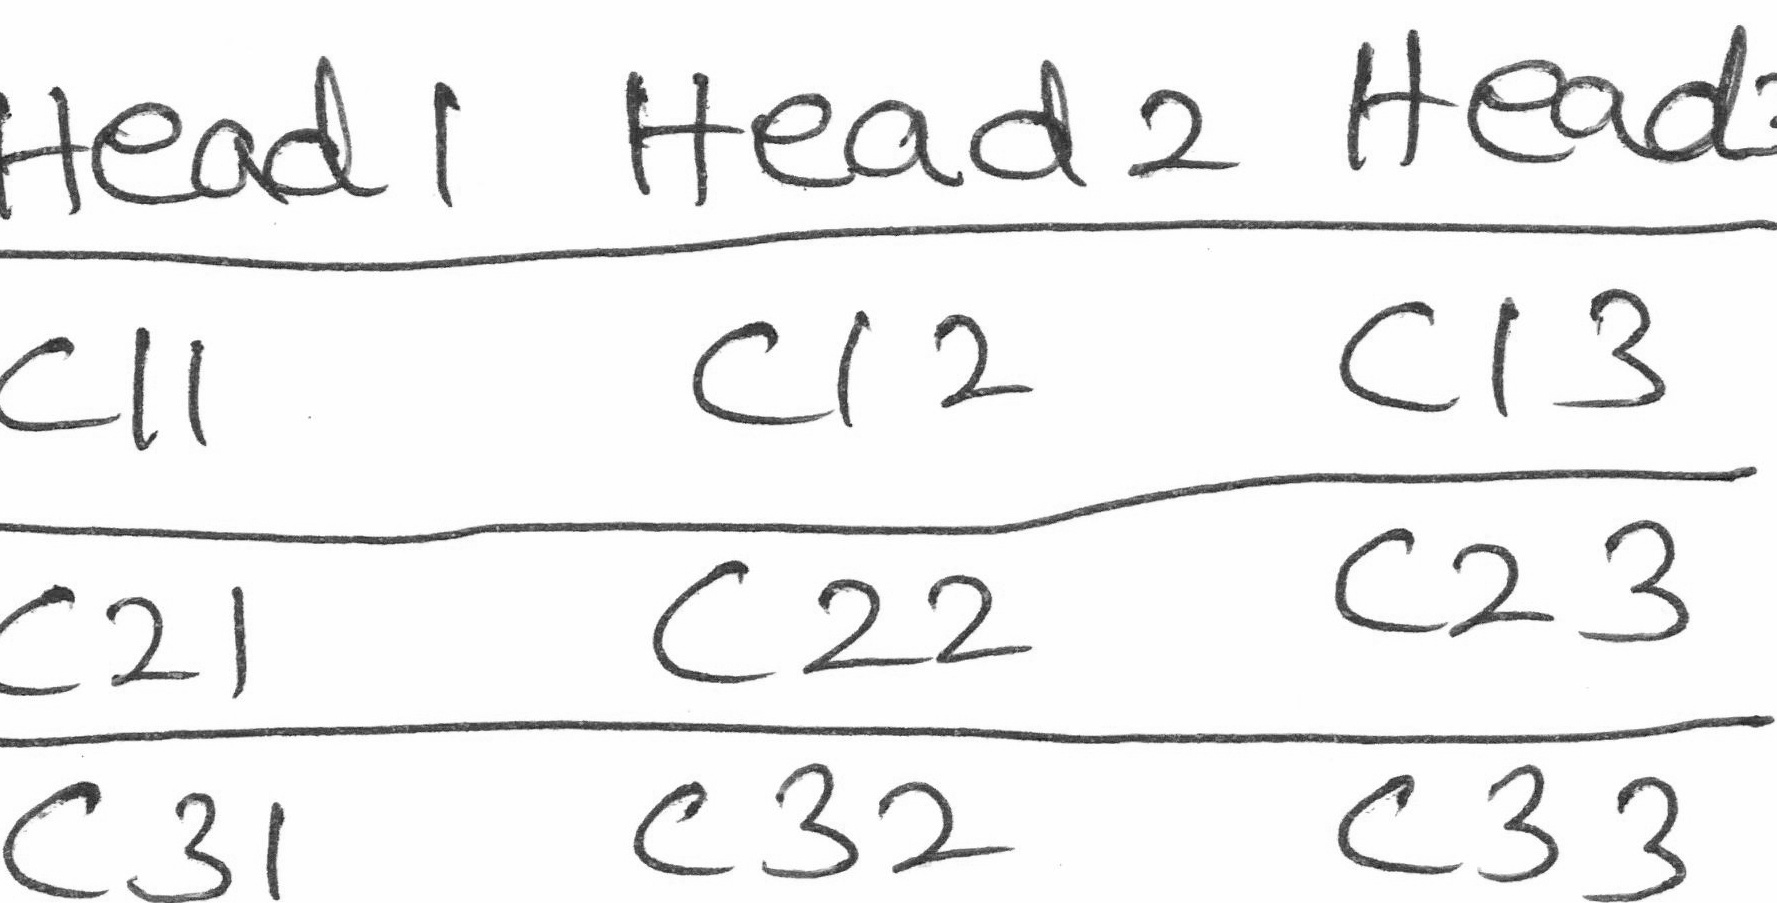 Head 1 Head 2 Head3
C11 C12 C13
C21 C22 C23
C31 C32 C33